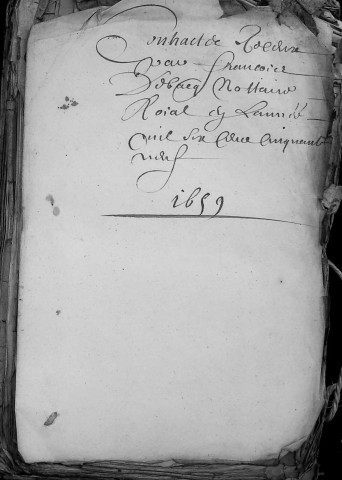 Contract de Receux
par francois
Debacq Nottaire
Roial en Lannée
mil six Cens Cinquante
neuf
1659